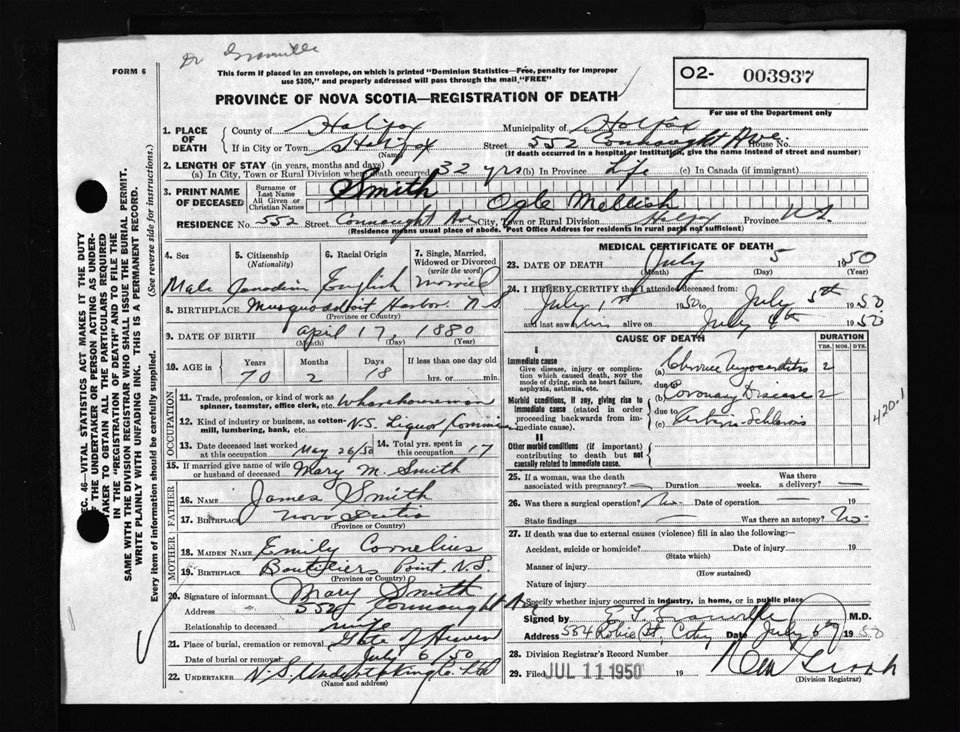 Dr Granville
FORM 6
This form if placed in an envelope, on which is printed "Dominion Statistics—Free, penalty for improper
use $300," and properly addressed will pass through the mail, "FREE"
O2- 003937
For use of the Department only
PROVINCE OF NOVA SCOTIA—REGISTRATION OF DEATH
SEC. 46—VITAL STATISTICS ACT MAKES IT THE DUTY
OF THE UNDERTAKER OR PERSON ACTING AS UNDER-
TAKER TO OBTAIN ALL THE PARTICULARS REQUIRED
IN THE "REGISTRATION OF DEATH" AND TO FILE THE
SAME WITH THE DIVISION REGISTRAR WHO SHALL ISSUE THE BURIAL PERMIT.
WRITE PLAINLY WITH UNFADING INK. THIS IS A PERMANENT RECORD.
Every item of information should be carefully supplied. (See reverse side for instructions.)
1. PLACE OF DEATH County of Halifax Municipality of Halifax
If in City or Town Halifax Street 552 Connaught Ave. House No.
(Name) (If death occurred in a hospital or institution, give the name instead of street and number)
2. LENGTH OF STAY (in years, months and days)
(a) In City, Town or Rural Division where death occurred 32 yrs (b) In Province Life (c) In Canada (if immigrant)
3. PRINT NAME OF DECEASED Surname or Last Name Smith
All Given or Christian Names Ogle Mellish
RESIDENCE No. 552 Street Connaught Ave City, Town or Rural Division Halifax Province N.S.
(Residence means usual place of abode. Post Office Address for residents in rural parts not sufficient)
4. Sex 5. Citizenship (Nationality) 6. Racial Origin 7. Single, Married, Widowed or Divorced (write the word)
Male Canadian English Married
8. BIRTHPLACE Musquodoboit Harbor. N.S
(Province or Country)
9. DATE OF BIRTH April 17, 1880
(Month) (Day) (Year)
10. AGE in Years Months Days If less than one day old
70 2 18 hrs. or min.
OCCUPATION
11. Trade, profession, or kind of work as spinner, teamster, office clerk, etc. Wharehouseman
12. Kind of industry or business, as cotton-mill, lumbering, bank, etc. N.S. Liquor Commission
13. Date deceased last worked at this occupation May 26/50 14. Total yrs. spent in this occupation 17
15. If married give name of wife or husband of deceased Mary M. Smith
FATHER
16. NAME James Smith
17. BIRTHPLACE Nova Scotia
(Province or Country)
MOTHER
18. MAIDEN NAME Emily Cornelius
19. BIRTHPLACE Boutiliers Point, N.S.
(Province or Country)
20. Signature of informant Mary Smith
Address 552 Connaught Ave
Relationship to deceased wife
21. Place of burial, cremation or removal Gate of Heaven
Date of burial or removal July 6/50
22. UNDERTAKER N.S. Undertaking Co. Ltd
(Name and address)
MEDICAL CERTIFICATE OF DEATH
23. DATE OF DEATH July 5 1950
(Month) (Day) (Year)
24. I HEREBY CERTIFY that I attended deceased from:
July 1st 1950 to July 5th 1950
and last saw him alive on July 4th 1950
CAUSE OF DEATH DURATION
YRS. MOS. DYS.
I
Immediate cause
Give disease, injury or complication which caused death, not the mode of dying, such as heart failure, asphyxia, asthenia, etc.
(a) Chronic Myocarditis 2
due to
Morbid conditions, if any, giving rise to immediate cause (stated in order proceeding backwards from immediate cause).
(b) Coronary Disease 2
due to
(c) Arterio-Schlerosis
420.1
II
Other morbid conditions (if important) contributing to death but not causally related to immediate cause.
25. If a woman, was the death associated with pregnancy? — Duration weeks. Was there a delivery? —
26. Was there a surgical operation? No. Date of operation —
State findings — Was there an autopsy? No.
27. If death was due to external causes (violence) fill in also the following:
Accident, suicide or homicide? Date of injury 19
(State which)
Manner of injury
(How sustained)
Nature of injury
Specify whether injury occurred in industry, in home, or in public place
Signed by E. F. Granville M.D.
Address 584 Robie St, City Date July 6th 1950
28. Division Registrar's Record Number
29. Filed JUL 11 1950 19
(Division Registrar)